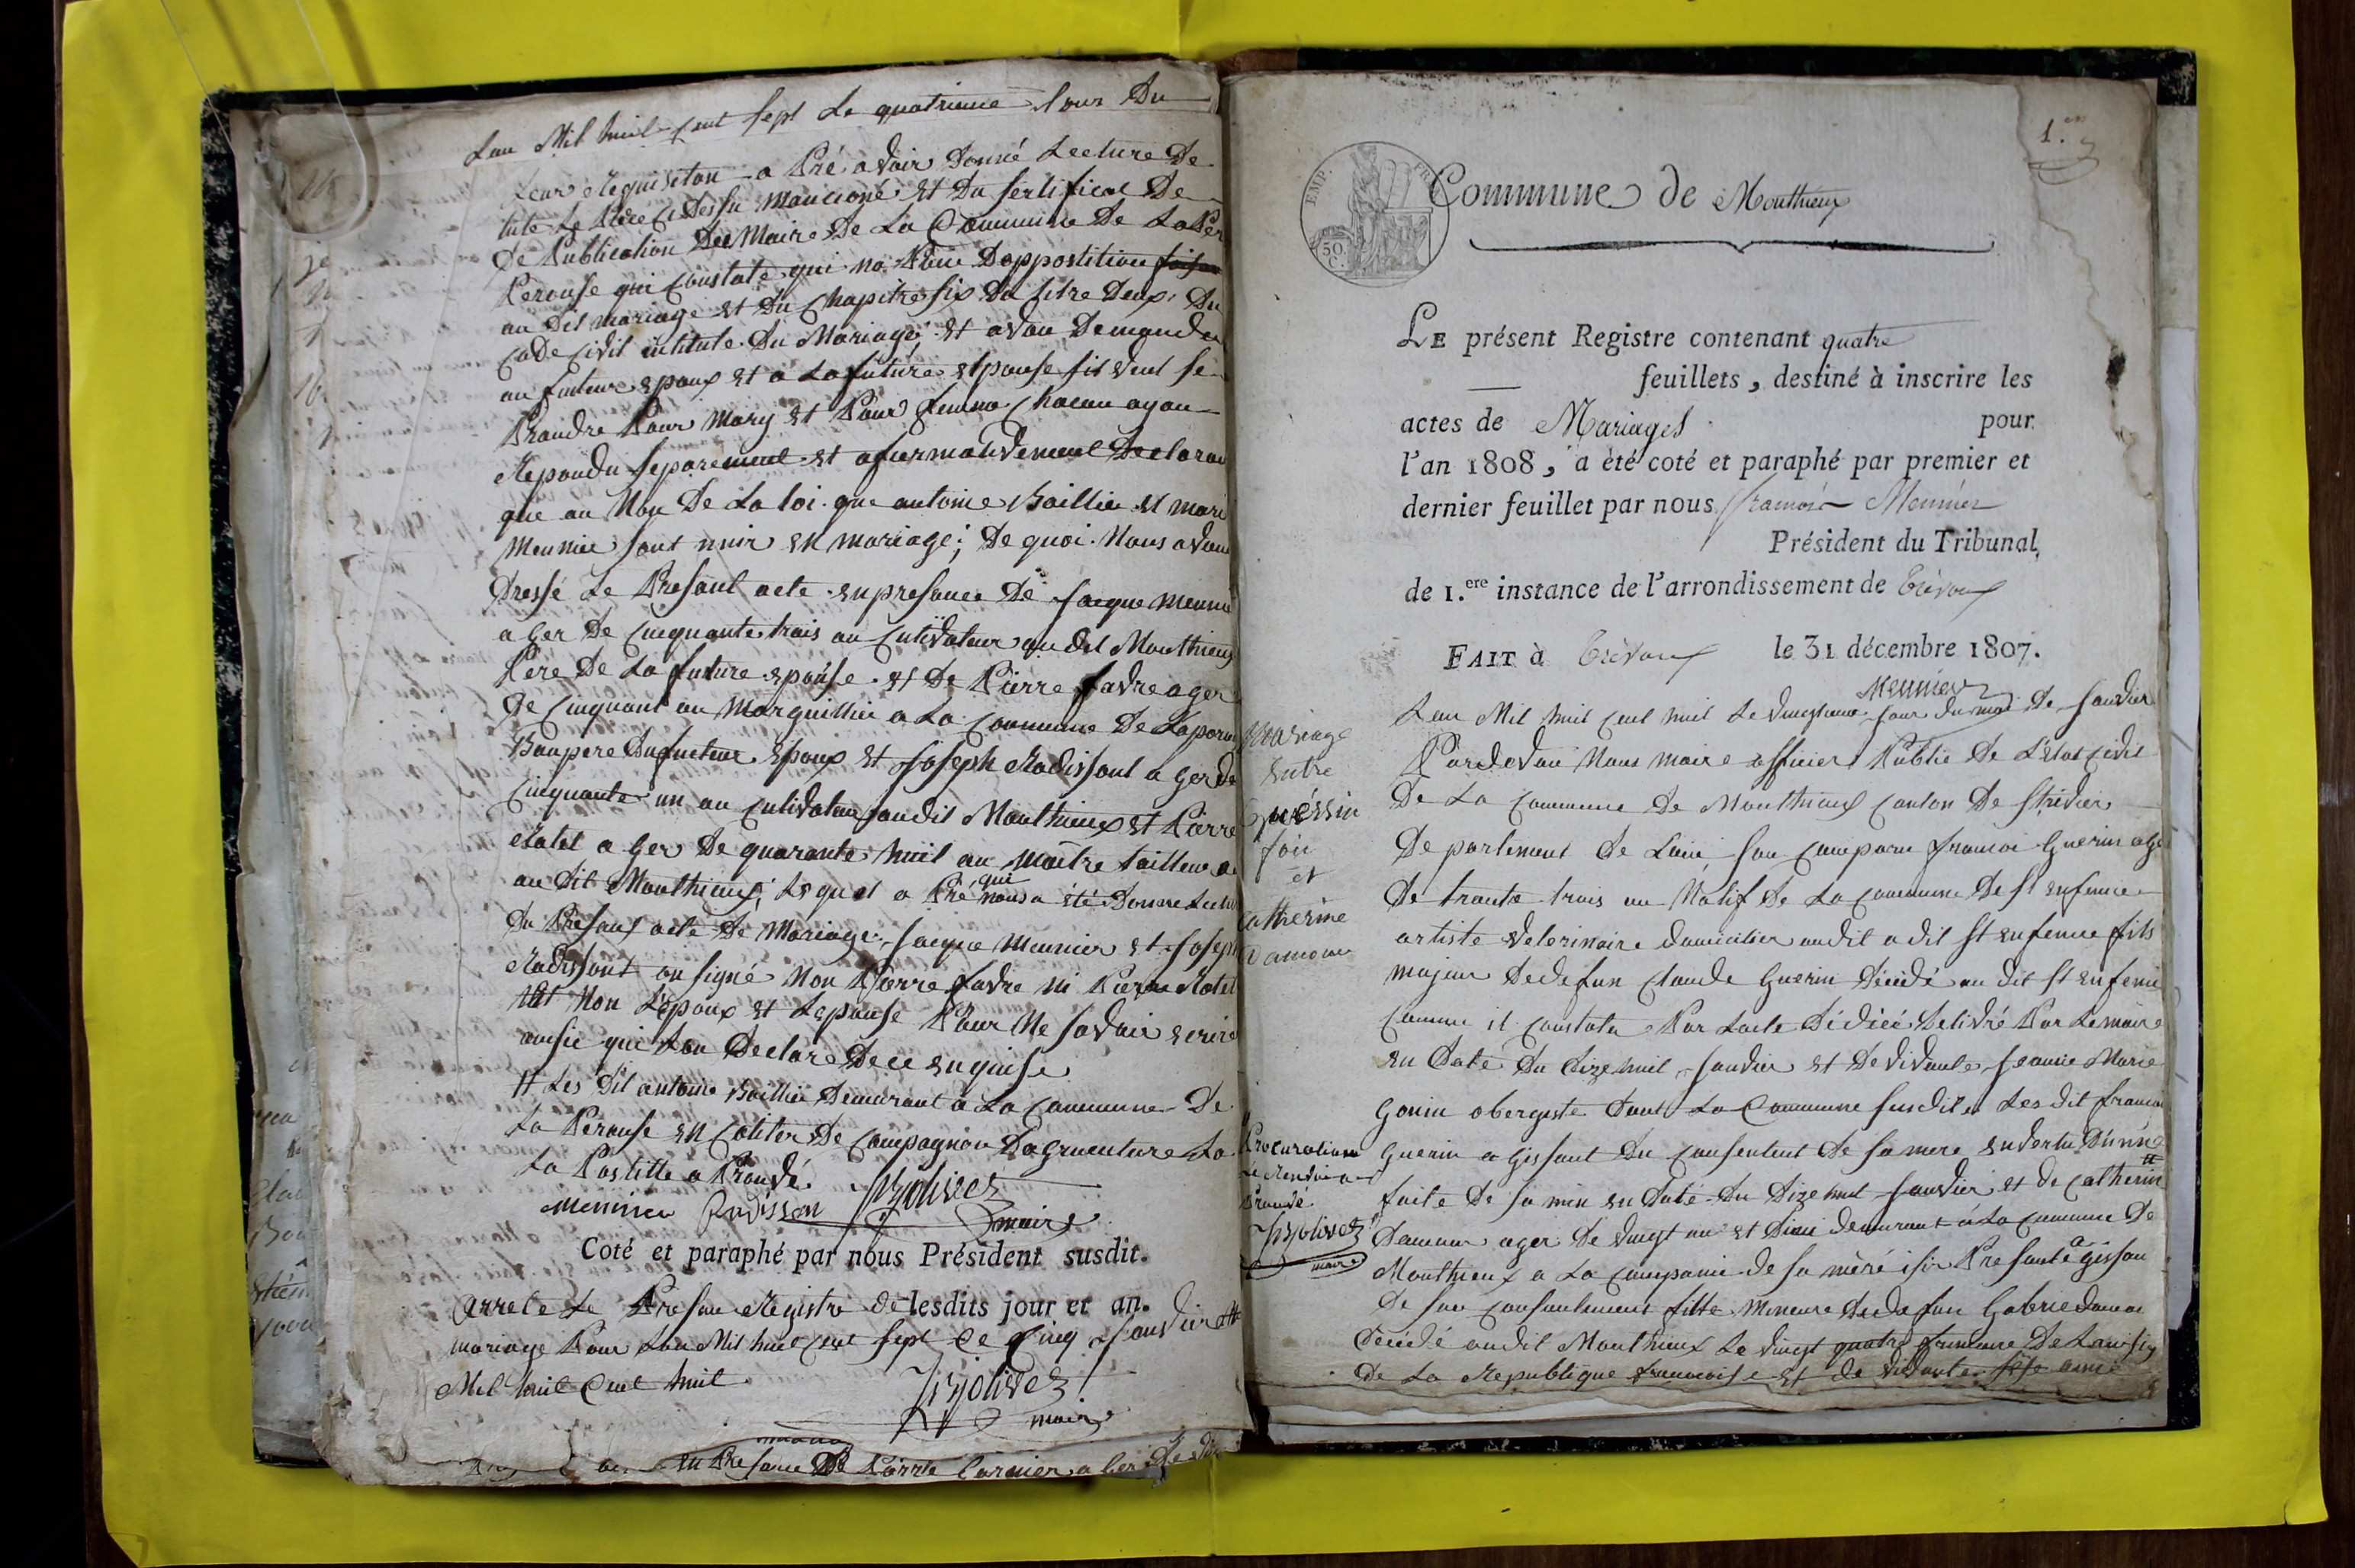 Lan Mil huit cent sept Le quatrieme Jour Du
Leur Requisiton a Pré avoir Donné Lecture De
tute Le Piece ci Dessu mancioné et Du sertificat De
De Publication Dee Maire De La Commune De La Per
Perouse qui Constate qui na Po
au Dit mariage et Du Chapitre six Du titre Deux Du
Code Civil intitule Du Mariage et avon Demander
au futeur epoux et a La future epouse sil veul se
Prandre Pour Mary et Pour femme Chacun ayan
Repondu separement et afiermativement Declaron
que au Non De La loi que antoine Baillie et mari
Meunier sont unir en mariage; De quoi Nous avon
Dressé Le Presant acte en presance De Jacque meunie
ager De Cinquante trois an Cultivateur au dit Monthieux
Pere De La future epouse et De Pierre favre ager
De Cinquant an Marguillier a La Commune De Laperou
Baupere Du futeur Epoux et Joseph Radissont ager De
Cinquante un an Cultivateur au dit Monthieux et Pierre
Ratel ager De quarante huit an Maitre tailleur
au Dit Monthieux; Lequel a Pré qui nous a été Donne Lectur
Du Presant acte De Mariage Jacque Meunier et Joseph
Radissont on signé Non Pierre favre ni Pierre Ratel
Non L'epoux et Lepouse Pour Ne savoir ecrire
ausie qui Lon Declare De ce enquise
# Les Dit antoine Baillie Demurant a La Commune De
La Perouse en Caliter De Compagnon Dagricuture La
La Postille a Prouvé
meunier Radisson Jolivet
maire
Coté et paraphé par nous Président susdit.
arrete Le Presan Registre de lesdits jour et an.
mariage Pour Lan Mil huit Cent sept Ce Cinq Janvier
Mil huit Cent huit
Jolivet
maire
en Presance De Pierre Carnier ager De
1.er
EMP. FR.
50 C.
Commune de Monthieux
LE présent Registre contenant quatre
feuillets, destiné à inscrire les
actes de Mariages pour
l'an 1808, a été coté et paraphé par premier et
dernier feuillet par nous françois Meunier
Président du Tribunal,
de 1.ere instance de l'arrondissement de Trévoux
FAIT à Trévoux le 31 décembre 1807.
Meunier
Mariage
Entre
Guérrin
foi
et
Catherine
Damour
Lan Mil huit Cent huit Le vingtunie Jour du moi De Janvier
Pardevan Nous maire officier Public De Létat Civil
De La Commune De Monthieux Canton De st trivier
Departement De Lain son Comparu francoi Guerin age
De trante trois an Natif De La Commune De st eufemie
artiste veterinaire domicilier au dit st eufemie fils
majeur De defun Claude Guerin Décédé au Dit st eufemie
Comme il Constata Par Lacte Dédicé Delivré Par Le maire
en Date Du Dize huit Janvier et De vivante Jeanne Marie
Gonin obergiste Dant La Commune susdite Les dit francoi
Guerin agissant Du Consentent De sa mere en vertu D'une
Procuration
Le Renvoi a
Prouvé
Jolivet
maire
faite De sa min en Date Du Dize huit Janvier et de Catherine
Damour ager De vingt an et Dimi demurant a La Commune De
Monthieux a La Compani de sa mère isi Presante agissan
De son Consantement fille Mineure De defun Gabrie damour
Décédé au dit Monthieux Le vingt quatre frimaire De Lan six
De La Republique francoise et de vivante